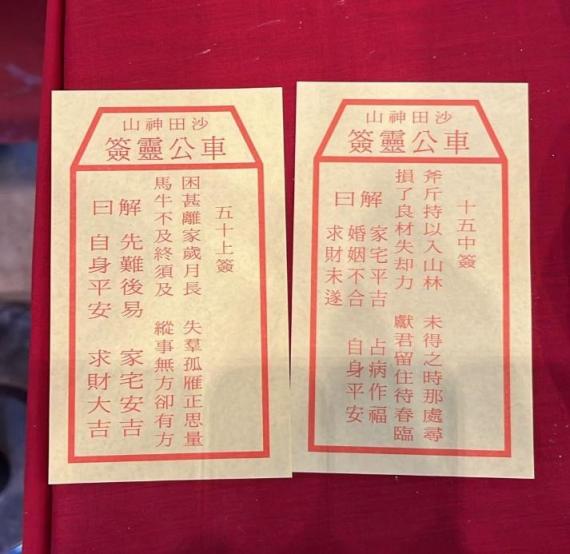 沙田神山
車公靈簽
五十上簽
困甚離家歲月長 失羣孤雁正思量
馬牛不及終須及 縱事無方卻有方
解曰
先難後易 家宅安吉
自身平安 求財大吉
沙田神山
車公靈簽
十五中簽
斧斤持以入山林 未得之時那處尋
損了良材失却力 獻君留住待春臨
解曰
家宅平吉 占病作福
婚姻不合 自身平安
求財未遂